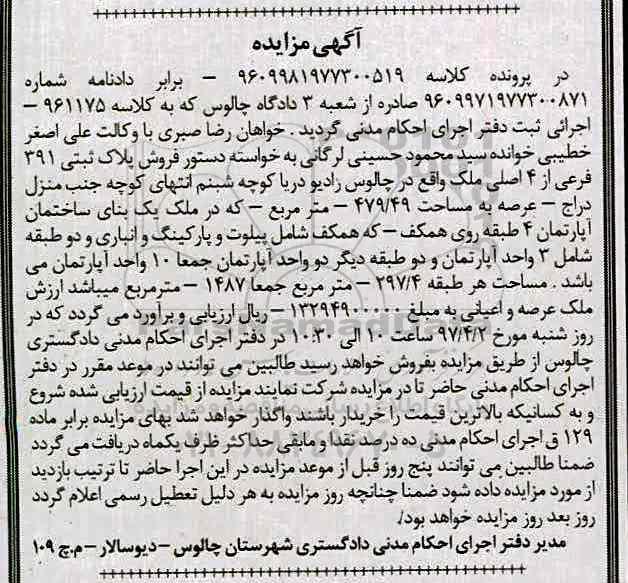 آگهی مزایده
در پرونده کلاسه ۹۶۰۹۹۸۱۹۷۷۳۰۰۵۱۹ – برابر دادنامه شماره
۹۶۰۹۹۷۱۹۷۷۳۰۰۸۷۱ صادره از شعبه ۳ دادگاه چالوس که به کلاسه ۹۶۱۱۷۵ –
اجرائی ثبت دفتر اجرای احکام مدنی گردید . خواهان رضا صبری با وکالت علی اصغر
خطیبی خوانده سید محمود حسینی لرگانی به خواسته دستور فروش پلاک ثبتی ۳۹۱
فرعی از ۴ اصلی ملک واقع در چالوس رادیو دریا کوچه شبنم انتهای کوچه جنب منزل
دراج – عرصه به مساحت ۴۷۹/۴۹ – متر مربع – که در ملک یک بنای ساختمان
آپارتمان ۴ طبقه روی همکف – که همکف شامل پیلوت و پارکینگ و انباری و دو طبقه
شامل ۳ واحد آپارتمان و دو طبقه دیگر دو واحد آپارتمان جمعا ۱۰ واحد آپارتمان می
باشد . مساحت هر طبقه ۲۹۷/۴ – متر مربع جمعا ۱۴۸۷ – مترمربع میباشد ارزش
ملک عرصه و اعیانی به مبلغ ۱۳۲۹۴۹۰۰۰۰۰ – ریال ارزیابی و برآورد می گردد که در
روز شنبه مورخ ۹۷/۴/۲ ساعت ۱۰ الی ۱۰:۳۰ در دفتر اجرای احکام مدنی دادگستری
چالوس از طریق مزایده بفروش خواهد رسید طالبین می توانند در موعد مقرر در دفتر
اجرای احکام مدنی حاضر تا در مزایده شرکت نمایند مزایده از قیمت ارزیابی شده شروع
و به کسانیکه بالاترین قیمت را خریدار باشند واگذار خواهد شد بهای مزایده برابر ماده
۱۲۹ ق اجرای احکام مدنی ده درصد نقدا و مابقی حداکثر ظرف یکماه دریافت می گردد
ضمنا طالبین می توانند پنج روز قبل از موعد مزایده در این اجرا حاضر تا ترتیب بازدید
از مورد مزایده داده شود ضمنا چنانچه روز مزایده به هر دلیل تعطیل رسمی اعلام گردد
روز بعد روز مزایده خواهد بود/.
مدیر دفتر اجرای احکام مدنی دادگستری شهرستان چالوس – دیوسالار – م.چ ۱۰۹